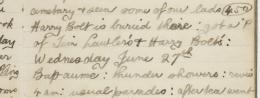 amsbury & seen some of our lads
Harry Bolt is buried there: got a P
of Jim Lawler's & Harry Bolt's:
Wednesday June 27th
Bapaume: thunder showers:
am: usual parades: after tea went